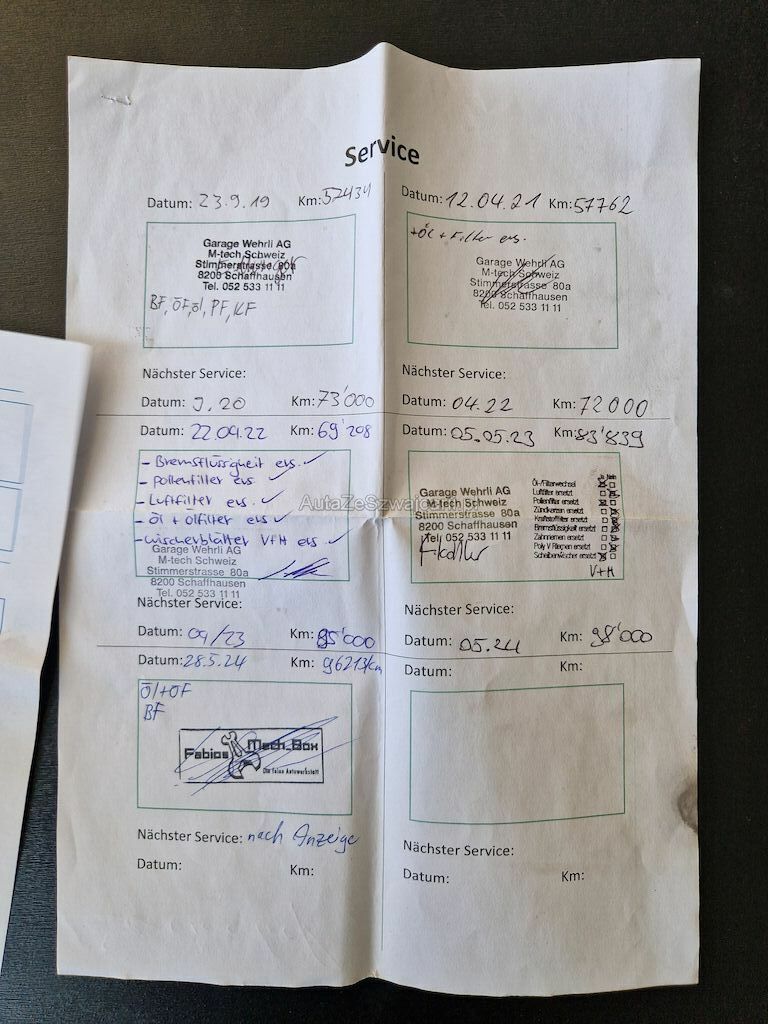 Service
Datum: 23.9.19 Km: 52434
Garage Wehrli AG
M-tech Schweiz
Stimmerstrasse 80a
8200 Schaffhausen
Tel. 052 533 11 11
BF, ÖF, öl, PF, KF
Nächster Service:
Datum: 9.20 Km: 73'000
Datum: 12.04.21 Km: 57762
+Öl + Filter ers.
Garage Wehrli AG
M-tech Schweiz
Stimmerstrasse 80a
8200 Schaffhausen
Tel. 052 533 11 11
Nächster Service:
Datum: 04.22 Km: 72000
Datum: 22.04.22 Km: 69'208
- Bremsflüssigkeit ers. ✓
- Pollenfilter ers. ✓
- Luftfilter ers. ✓
- Öl + Ölfilter ers. ✓
- Wischerblätter V+H ers. ✓
Garage Wehrli AG
M-tech Schweiz
Stimmerstrasse 80a
8200 Schaffhausen
Tel. 052 533 11 11
Nächster Service:
Datum: 04/23 Km: 85'000
Datum: 05.05.23 Km: 83'839
Garage Wehrli AG
M-tech Schweiz
Stimmerstrasse 80a
8200 Schaffhausen
Tel. 052 533 11 11
Ja Nein
Öl-/Filterwechsel
Luftfilter ersetzt
Pollenfilter ersetzt
Zündkerzen ersetzt
Kraftstofffilter ersetzt
Bremsflüssigkeit ersetzt
Zahnriemen ersetzt
Poly V Riemen ersetzt
Scheibenwischer ersetzt
V+H
Nächster Service:
Datum: 05.24 Km: 98'000
Datum: 28.5.24 Km: 96213km
Öl+ÖF
BF
Fabios Mech_Box
Die feine Autowerkstatt
Nächster Service: nach Anzeige
Datum: Km:
Datum: Km:
Nächster Service:
Datum: Km: